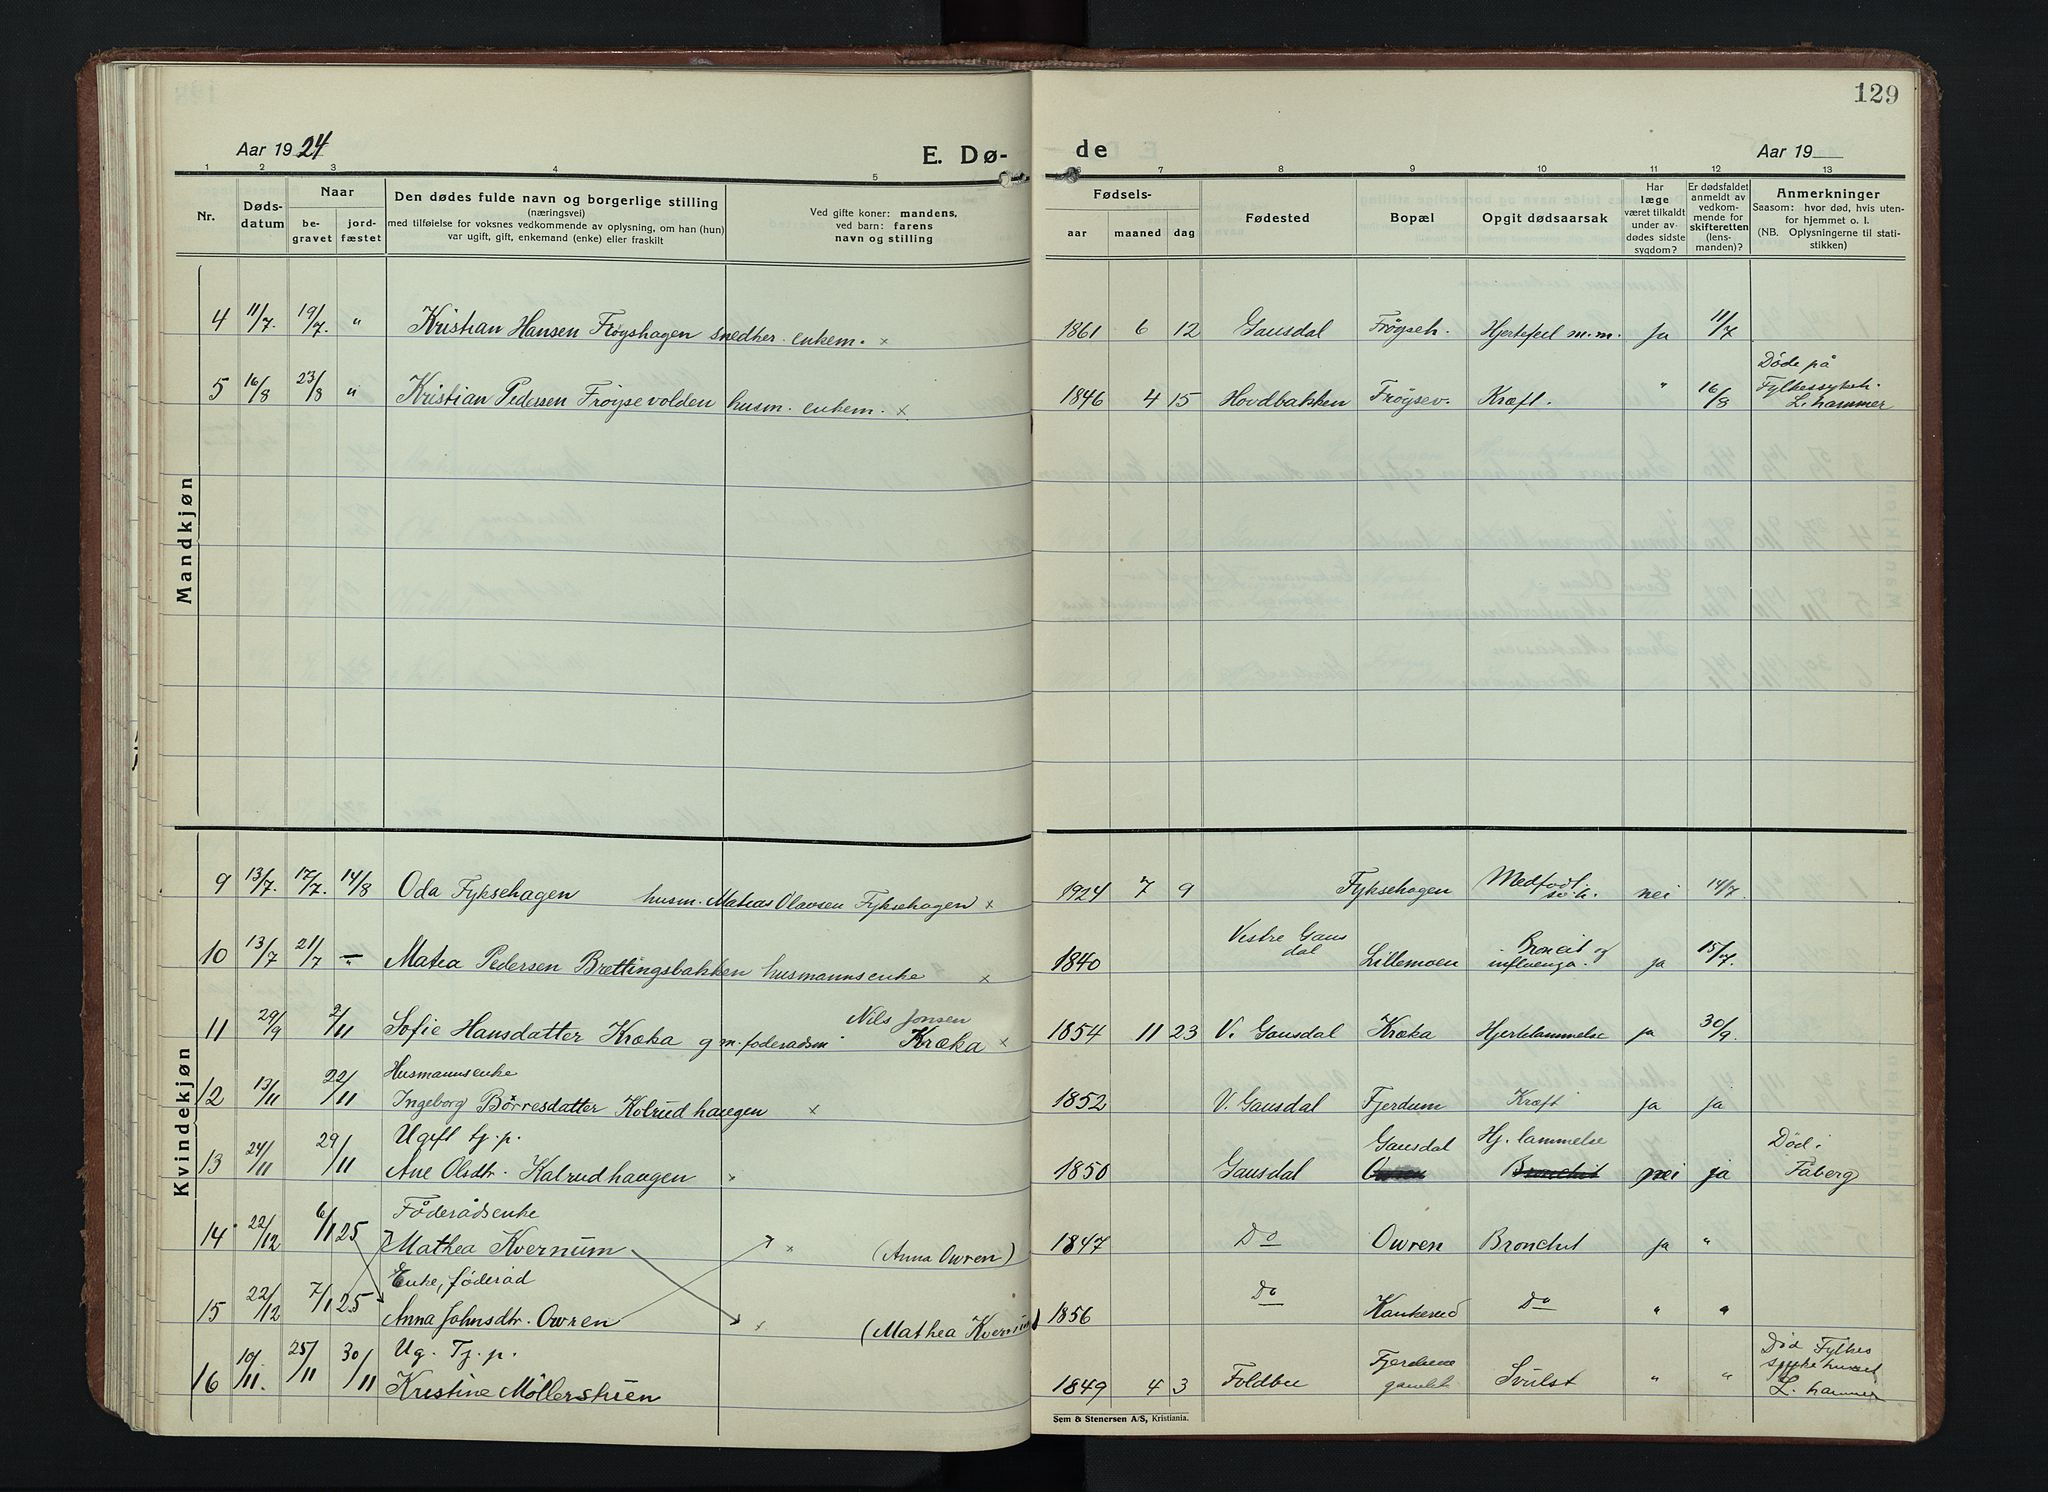 129
Aar 1924
E. Dø-
de
Aar 19
1 2 3 4 5 6 7 8 9 10 11 12 13
Nr.
Døds-
datum
Naar
be-
gravet
jord-
fæstet
Den dødes fulde navn og borgerlige stilling
(næringsvei)
med tilføielse for voksnes vedkommende av oplysning, om han (hun)
var ugift, gift, enkemand (enke) eller fraskilt
Ved gifte koner: mandens,
ved barn: farens
navn og stilling
Fødsels-
aar maaned dag
Fødested
Bopæl
Opgit dødsaarsak
Har
læge
været tilkaldt
under av-
dødes sidste
sygdom?
Er dødsfaldet
anmeldt av
vedkom-
mende for
skifteretten
(lens-
manden)?
Anmerkninger
Saasom: hvor død, hvis uten-
for hjemmet o. l.
(NB. Oplysningerne til stati-
stikken)
Mandkjøn
4 11/7. 19/7. " Kristian Hansen Frøyshagen snedker. enkem. x 1861 6 12 Gausdal Frøyseh. Hjertefeil m.m. Ja 11/7
Døde på
5 16/8 23/8 " Kristian Pedersen Frøysevolden husm. enkem. x 1846 4 15 Hovdbakken Frøysev. Kræft. " 16/8 Fylkessykeh.
L. hammer
Kvindekjøn
9 13/7. 17/7. 14/8 Oda Fyksehagen husm. Matias Olavsen Fyksehagen x 1924 7 9 Fyksehagen Medfødt nei 14/7.
Vestre Gaus
dal
Broncit og
10 13/7 21/7 " Matea Pedersen Brettingsbakken husmannsenke x 1840 Lillemoen influenza. ja 15/7.
Nils Jonsen
11 29/9 2/11 Sofie Hansdatter Kræka g m. føderaadsm. Kræka x 1854 11 23 V. Gausdal Kræka Hjertelammelse ja 30/9.
Husmannsenke
12 13/11 22/11 Ingeborg Børresdatter Kolrudhaugen x 1852 V. Gausdal Fjerdum Kræft ja ja
Ugift tj. p. Gausdal Hj. lammelse Død i
13 24/11 29/11 Ane Olsdtr. Kalrudhaugen x 1850 Gausdal Owren Bronchit nei ja Fåberg
Føderådsenke
14 22/12 6/1 25 Mathea Kvernum x (Anna Owren) 1847 Do Owren Bronchit ja "
Enke, føderåd
15 22/12 7/1 25 Anna Johnsdtr. Owren x (Mathea Kvernum) 1856 Do Kankerud Do " "
Ug. Tj. p. Død Fylkes
sykehuset
16 10/11. 25/11 30/11 Kristine Möllerstuen 1849 4 3 Foldbu Fjerdum gamleh Svulst " " L. hammer
Sem & Stenersen A/S, Kristiania.